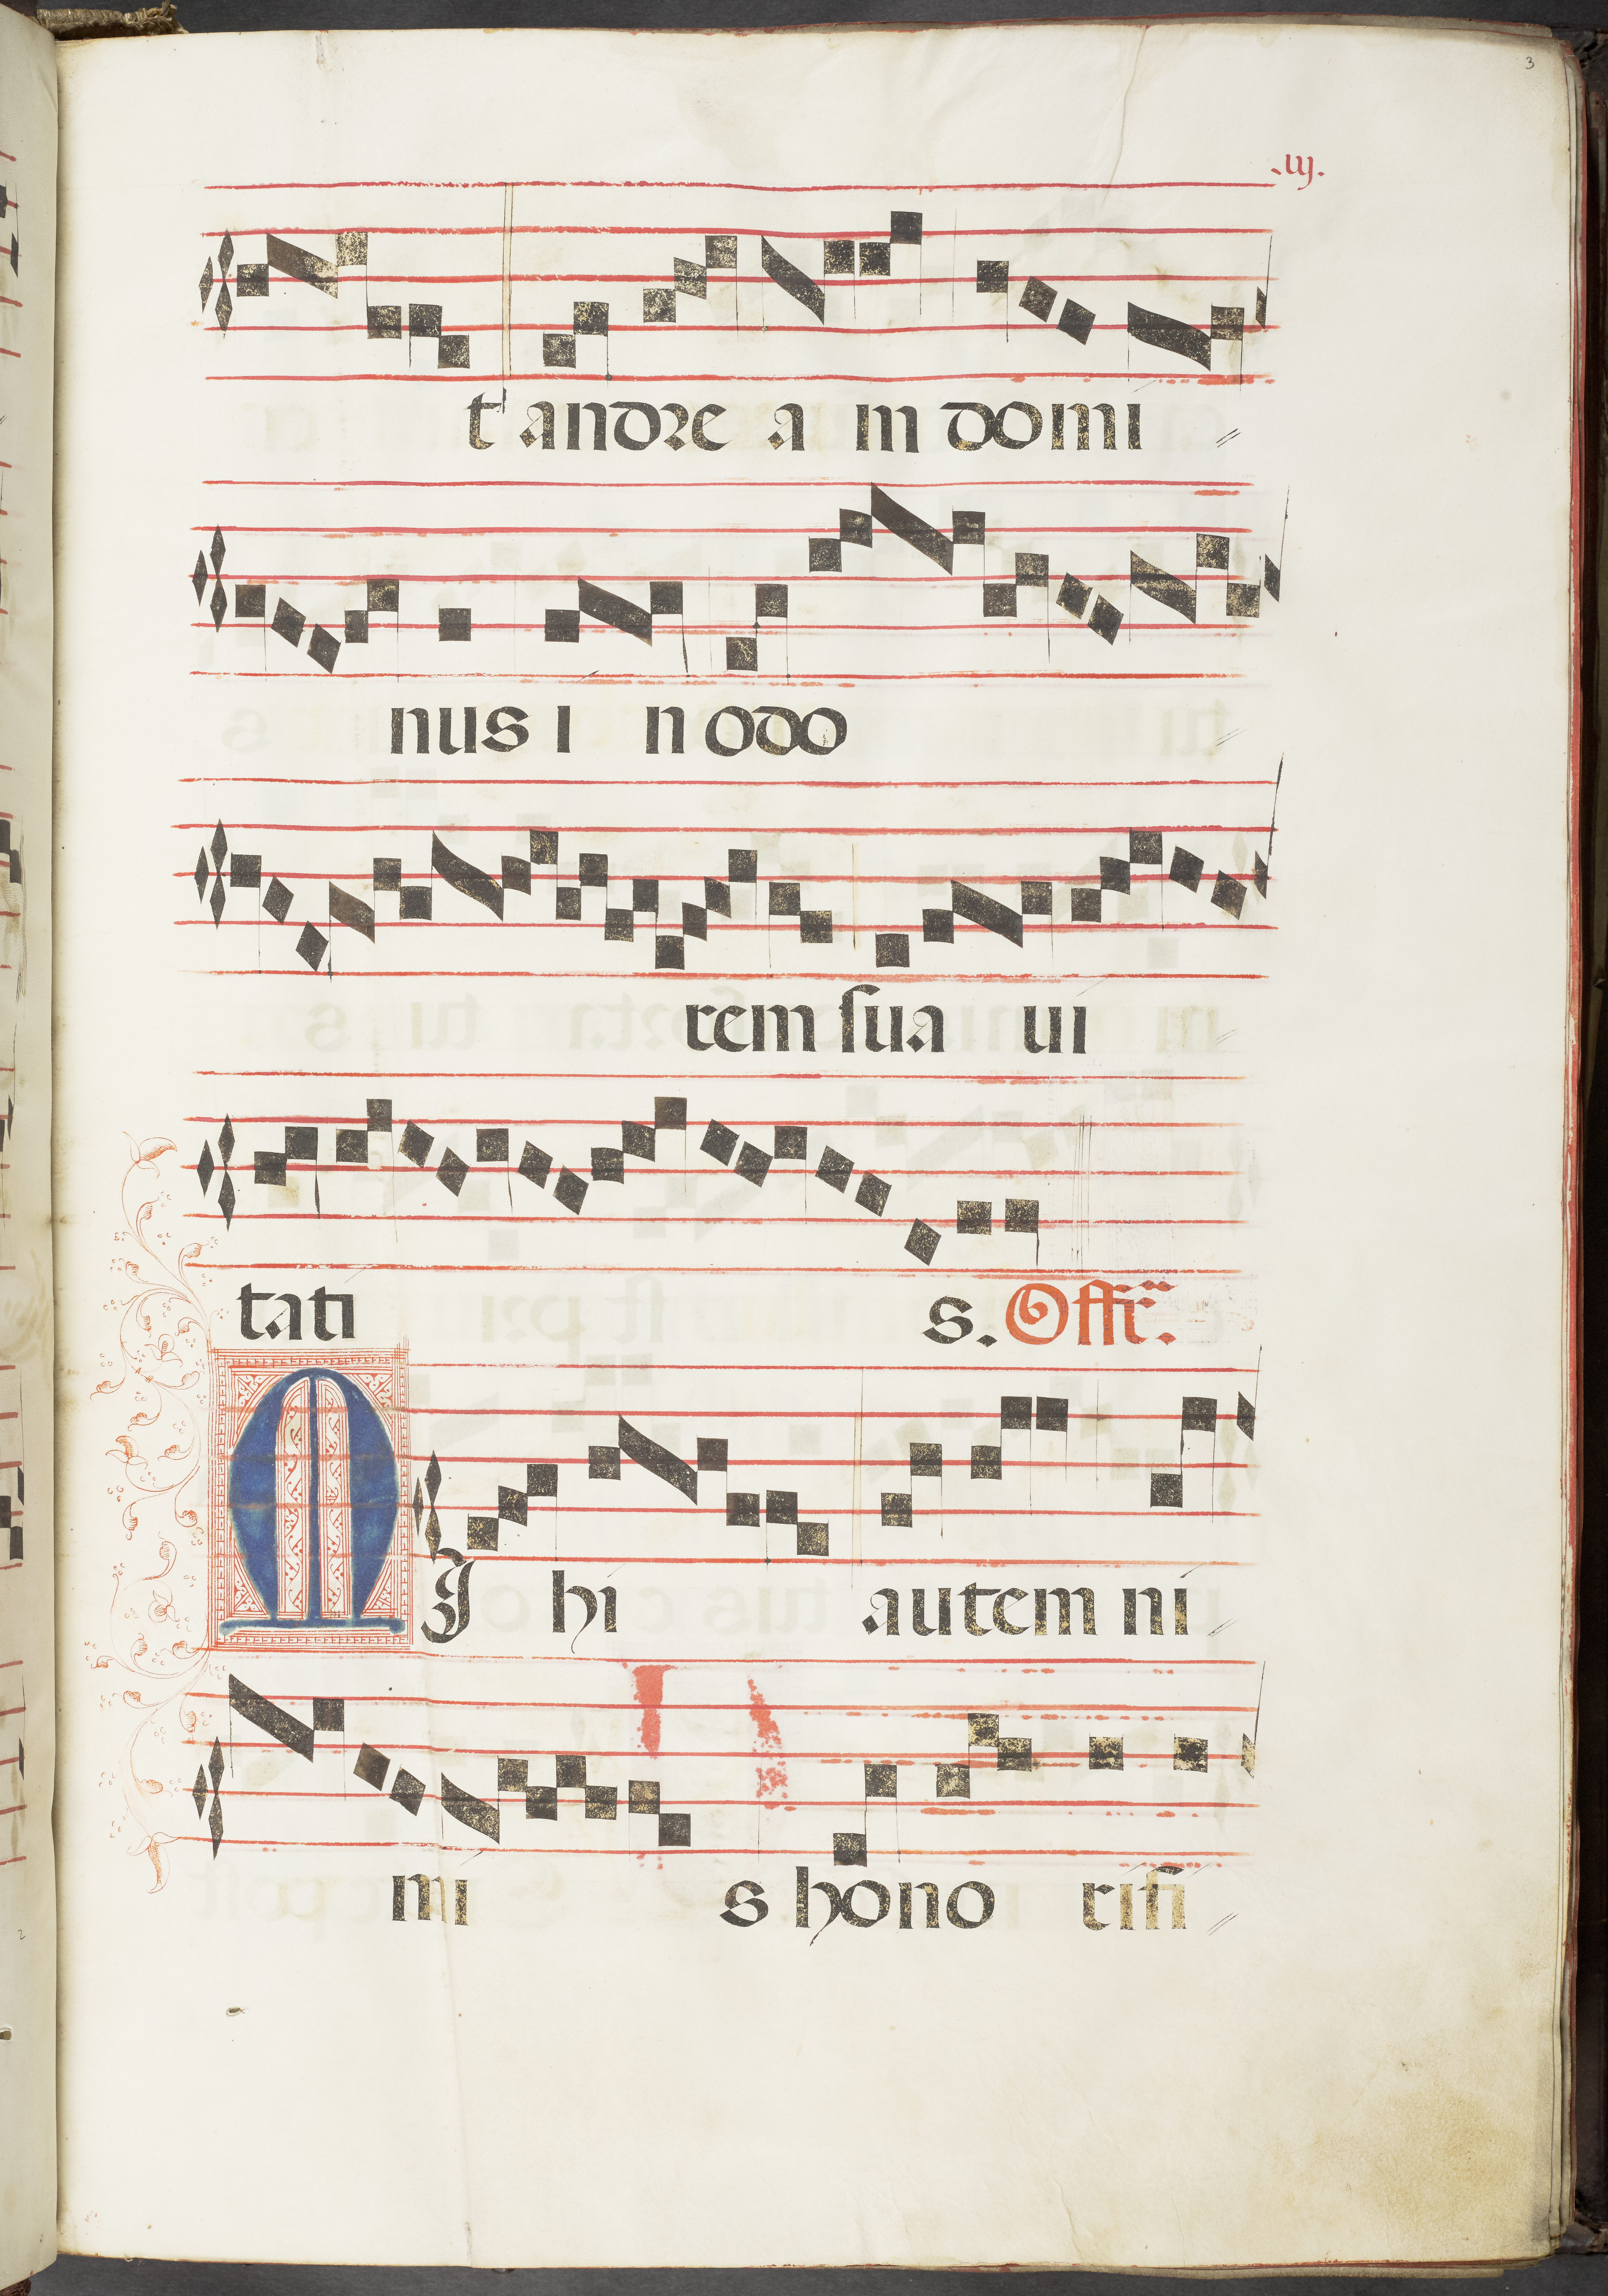 3
.iij.
t andre a m domi
nus i n odo
rem sua ui
tati s. Offr̃.
M I hi autem ni
mi s hono rifi
2